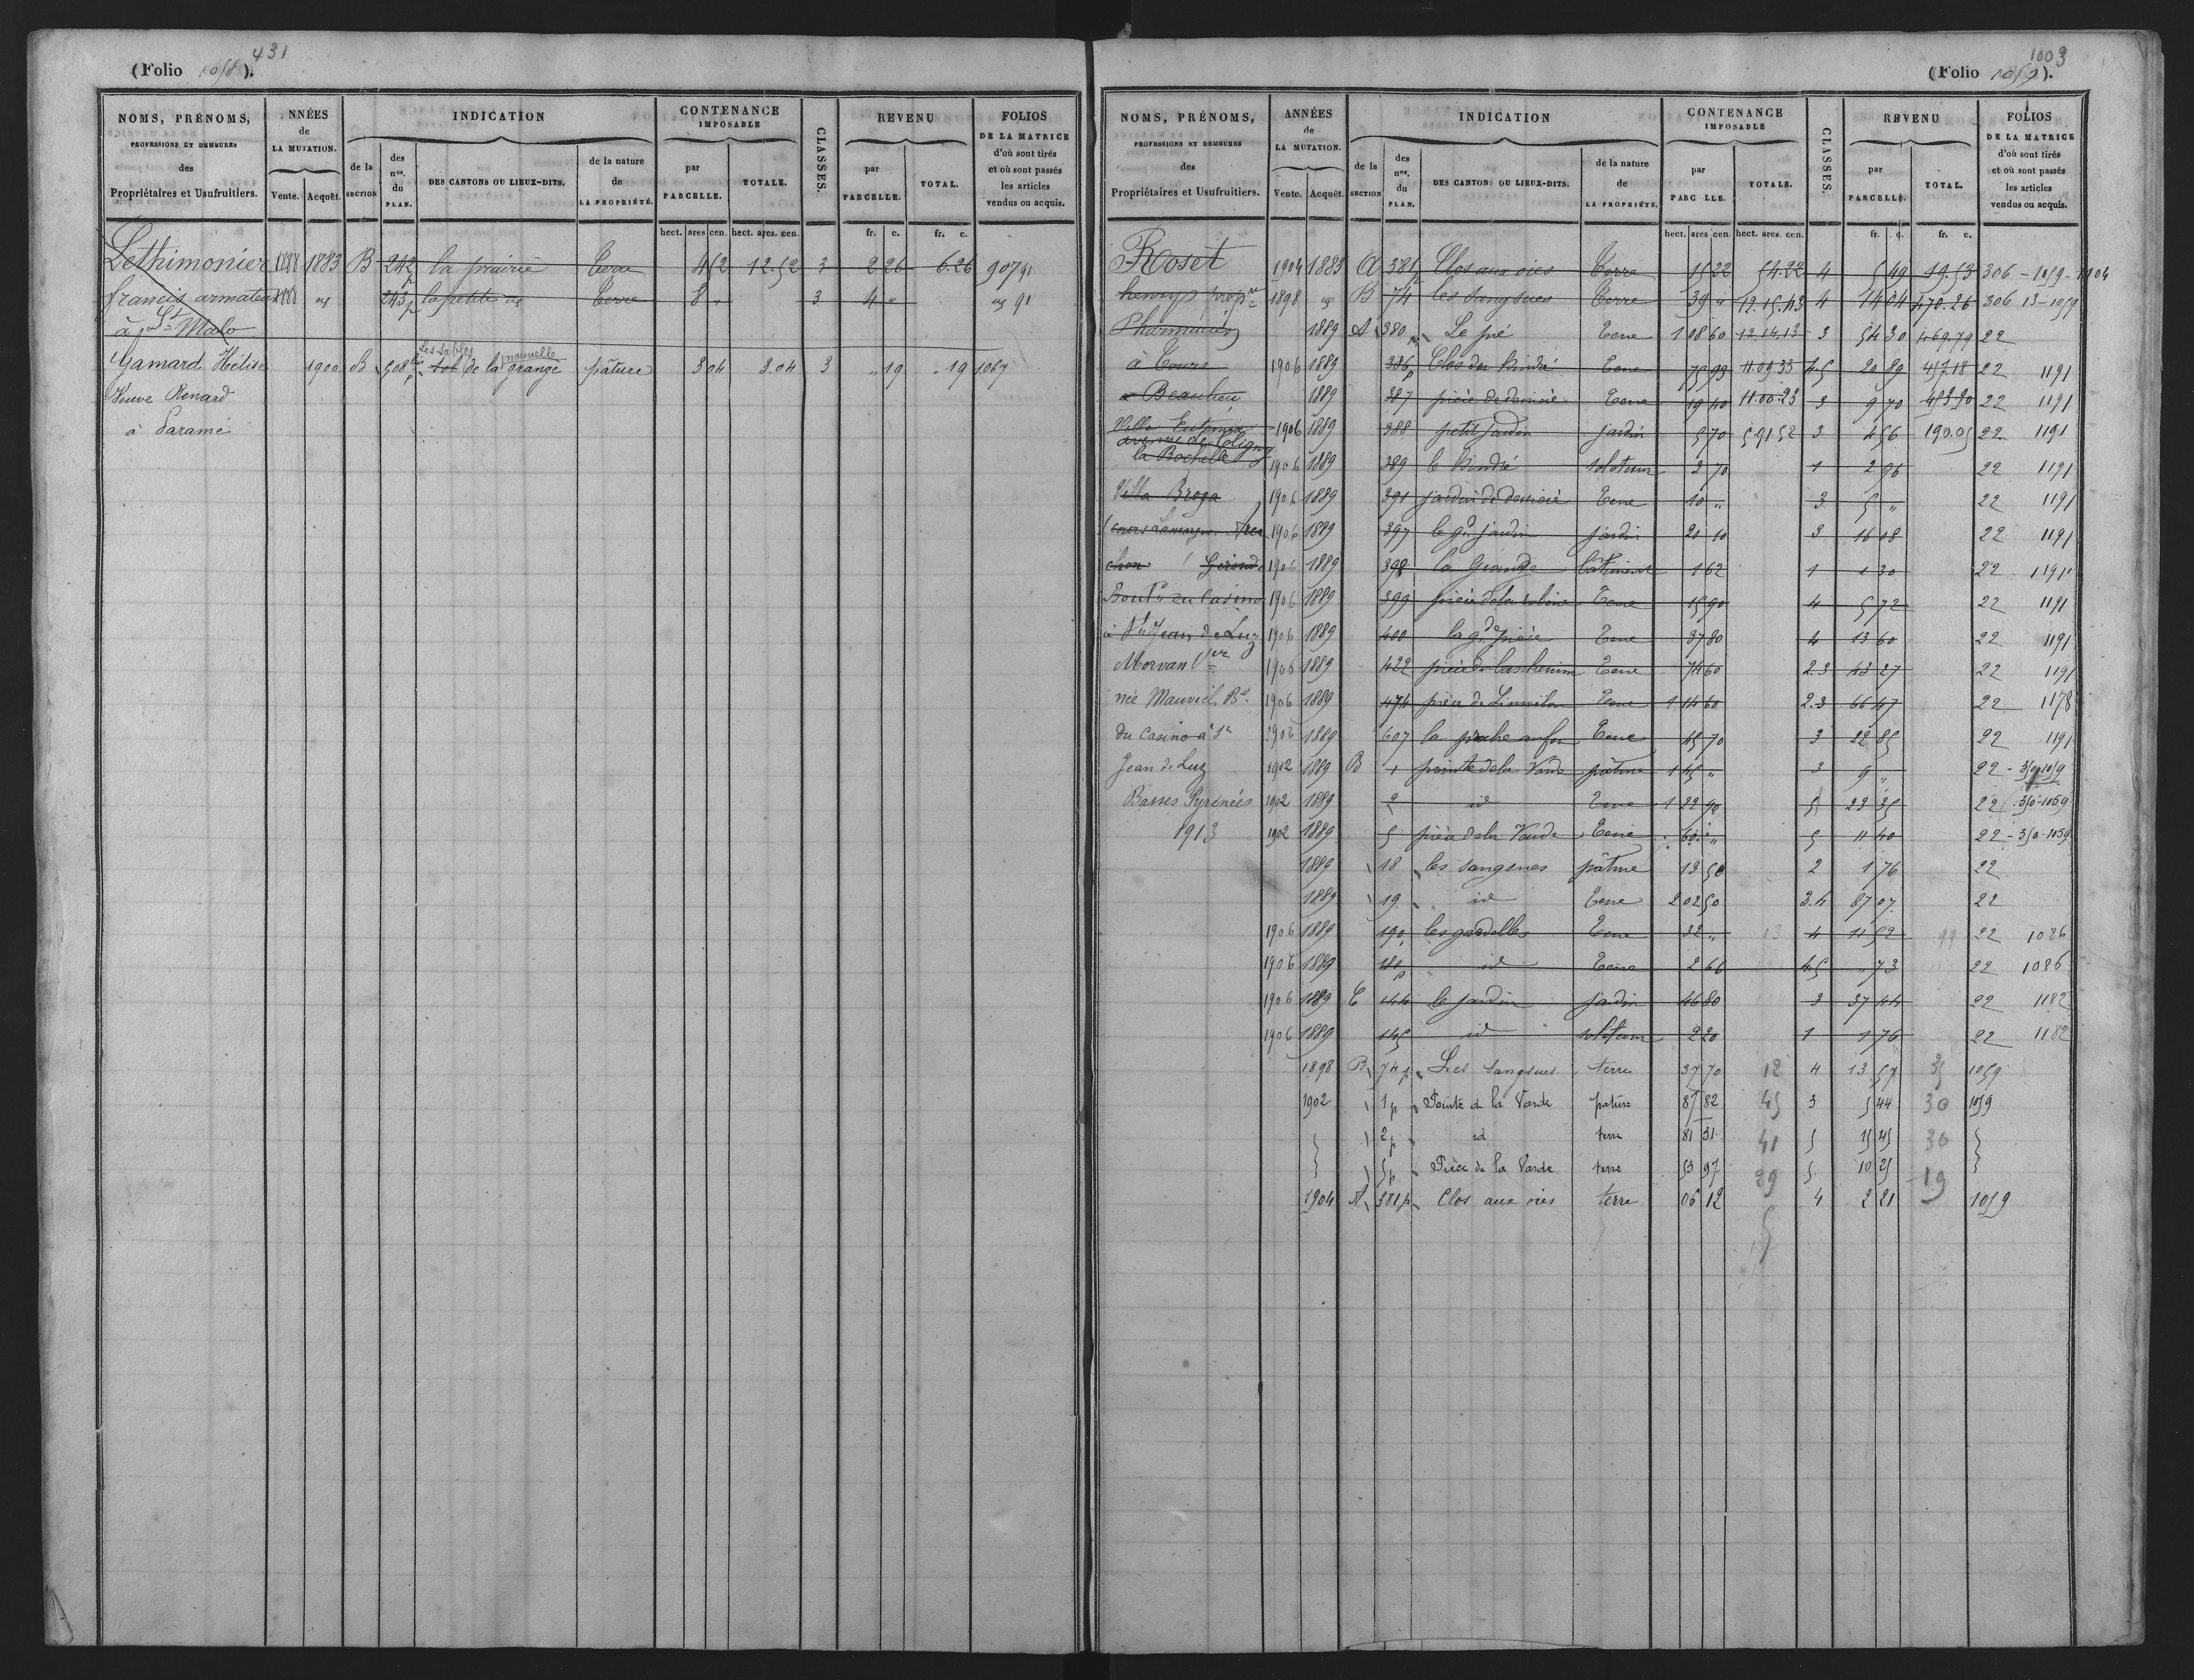 431
(Folio 1058).
NOMS, PRÉNOMS,
PROFESSIONS ET DEMEURES
des
Propriétaires et Usufruitiers.
NNÉES
de
LA MUTATION.
Vente. Acquêt.
INDICATION
de la
SECTION
des
nos.
du
PLAN.
DES CANTONS OU LIEUX-DITS.
de la nature
de
LA PROPRIÉTÉ.
CONTENANCE
IMPOSABLE
par
PARCELLE.
TOTALE.
CLASSES.
REVENU
par
PARCELLE.
TOTAL.
FOLIOS
DE LA MATRICE
d'où sont tirés
et où sont passés
les articles
vendus ou acquis.
hect. ares cen. hect. ares. cen. fr. c. fr. c.
Lethimonier 1888 1883 B 242 la prairie terre 4 52 12.52 3 2 26 6.26 907 91
francis armateur 1888 id 243p la petite id terre 8 " 3 4 " id 91
à St Malo
Les Sables nouvelle
Gamard Hélise 1900 B 508 bis p de la grange pâture 3 04 3.04 3 " 19 . 19 1067
Veuve Renard
à Paramé
1003
(Folio 1059).
NOMS, PRÉNOMS,
PROFESSIONS ET DEMEURES
des
Propriétaires et Usufruitiers.
ANNÉES
de
LA MUTATION.
Vente. Acquêt.
INDICATION
de la
SECTION
des
nos.
du
PLAN.
DES CANTONS OU LIEUX-DITS.
de la nature
de
LA PROPRIÉTÉ.
CONTENANCE
IMPOSABLE
par
PARC LLE.
TOTALE.
CLASSES.
REVENU
par
PARCELLE.
TOTAL.
FOLIOS
DE LA MATRICE
d'où sont tirés
et où sont passés
les articles
vendus ou acquis.
hect. ares cen. hect. ares. cen. fr. c. fr. c.
Roset 1904 1883 A 381 Clos aux oies terre 15 22 54.22 4 5 49 19.53 306 - 1059 - 1104
henry propre 1898 id B 74 les Sangsues terre 39 " 12.15.43 4 14 04 470.26 306 13 - 1059
Pharmacien 1889 A 380 Le pré terre 1 08 60 12.14.13 3 54 30 469.79 22
à Tours 1906 1889 386p Clos du Bindé terre 79 93 11.09.33 4.5 20 89 457.18 22 1191
à Beaulieu 1889 387 pièce de derrière terre 19 40 11.00.23 3 9 70 453.90 22 1191
Villa 1906 1889 388 petit jardin jardin 5 70 5.91.52 3 4 56 190.05 22 1191
avenue de Coligny
la Rochelle 1906 1889 389 le Bindé sol et cour 3 70 1 2 96 22 1191
Villa Broga 1906 1889 391 jardin de derrière terre 10 " 3 5 " 22 1191
(cours Arca 1906 1889 397 le gd jardin jardin 20 10 3 16 08 22 1191
chon Gironde 1906 1889 398 la Grande bâtiment 1 62 1 1 30 22 1191
Boulrd du Casino 1906 1889 399 pièce de la terre 15 90 4 5 72 22 1191
à St Jean de Luz 1906 1889 400 la gde pièce terre 37 80 4 13 60 22 1191
Morvan Vve 1906 1889 422 pièce du terre 74 60 2.3 43 27 22 1191
née Mauviel Bd 1906 1889 474 pièce de terre 1 14 60 2.3 66 47 22 1178
du Casino à St 1906 1889 607 la terre 45 70 3 22 85 22 1191
Jean de Luz 1902 1889 B 1 pointe de la Varde pâture 1 45 " 3 9 " 22 - 350-1059
Basses Pyrénées 1902 1889 2 id terre 1 22 90 5 23 35 22 350-1059
1913 1902 1889 5 pièce de la Varde terre 60 " 5 11 40 22 - 350-1059
1889 18 les sangsues pâture 13 50 2 1 76 22
1889 19 id terre 2 02 50 3.4 87 07 22
1906 1889 190 les gardelles terre 32 " 13 4 11 52 99 22 1086
1906 1889 id terre 2 66 4.5 " 73 22 1086
1906 1889 C 144 le jardin jardin 46 80 3 37 44 22 1182
1906 1889 145 id sol et cour 2 20 1 1 76 22 1182
1898 B 74p Les sangsues terre 37 70 12 4 13 57 35 1059
1902 1p Pointe de la Varde pature 87 82 45 3 5 44 30 1059
2p id terre 81 31 41 5 15 45 30
5p Pièce de la Varde terre 53 97 29 5 10 25 19
1904 A 381p Clos aux oies terre 06 12 4 2 21 1059